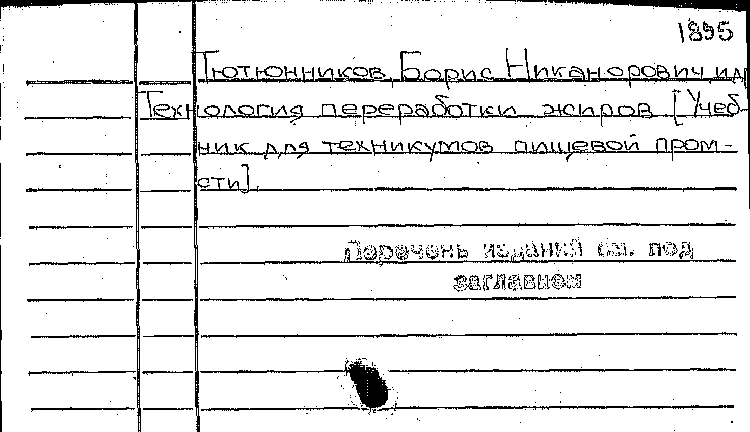 1895
Тютюнников, Борис Никанорович и др
Технология переработки жиров [Учеб-
ник для техникумов пищевой пром-
сти].
Перечень изданий см. под
заглавием